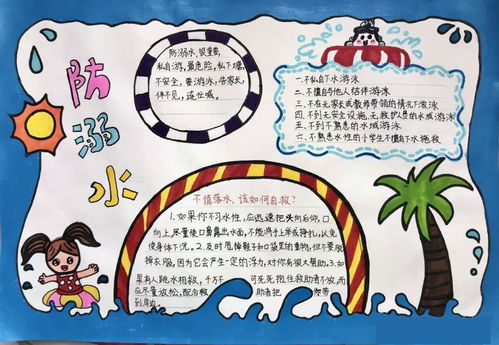 防溺水
防溺水,很重要,
私自游,最危险,私下塘,
不安全,要游泳,告家长,
伴不见,连忙喊。
一.不私自下水游泳
二.不擅自与他人结伴游泳
三.不在无家长或教师带领的情况下游泳
四.不到无安全设施,无救护人员的水域游泳
五.不到不熟悉的水域游泳
六.不熟悉水性的小学生不擅自下水施救
不慎落水,该如何自救?
1.如果你不习水性,应迅速把头向后仰,口
向上,尽量使口鼻露出水面,不能将手上举或挣扎,以免
使身体下沉。2.及时甩掉鞋子和口袋里的重物,但不要脱
掉衣服,因为它会产生一定的浮力,对你有很大帮助。3.如
果有人跳水相救,千万不可死死抱住救助者不放,而
应尽量放松,配合救助者把你带
到岸边